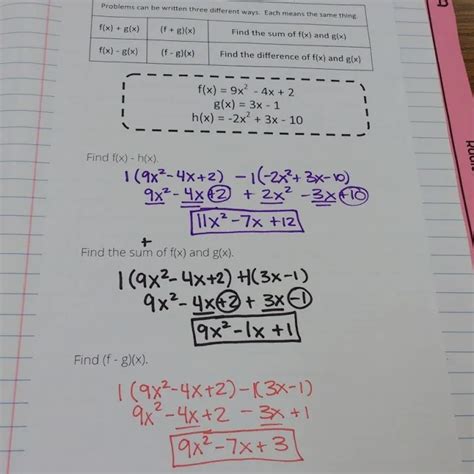 Problems can be written three different ways. Each means the same thing.
f(x) + g(x) (f + g)(x) Find the sum of f(x) and g(x)
f(x) - g(x) (f - g)(x) Find the difference of f(x) and g(x)
f(x) = 9x² - 4x + 2
g(x) = 3x - 1
h(x) = -2x² + 3x - 10
Find f(x) - h(x).
1(9x²-4x+2) -1(-2x²+3x-10)
9x²-4x+2 + 2x² -3x+10
11x²-7x+12
+
Find the sum of f(x) and g(x).
1(9x²-4x+2) +1(3x-1)
9x²-4x+2 + 3x-1
9x²-1x+1
Find (f - g)(x).
1(9x²-4x+2)-1(3x-1)
9x²-4x+2 -3x+1
9x²-7x+3